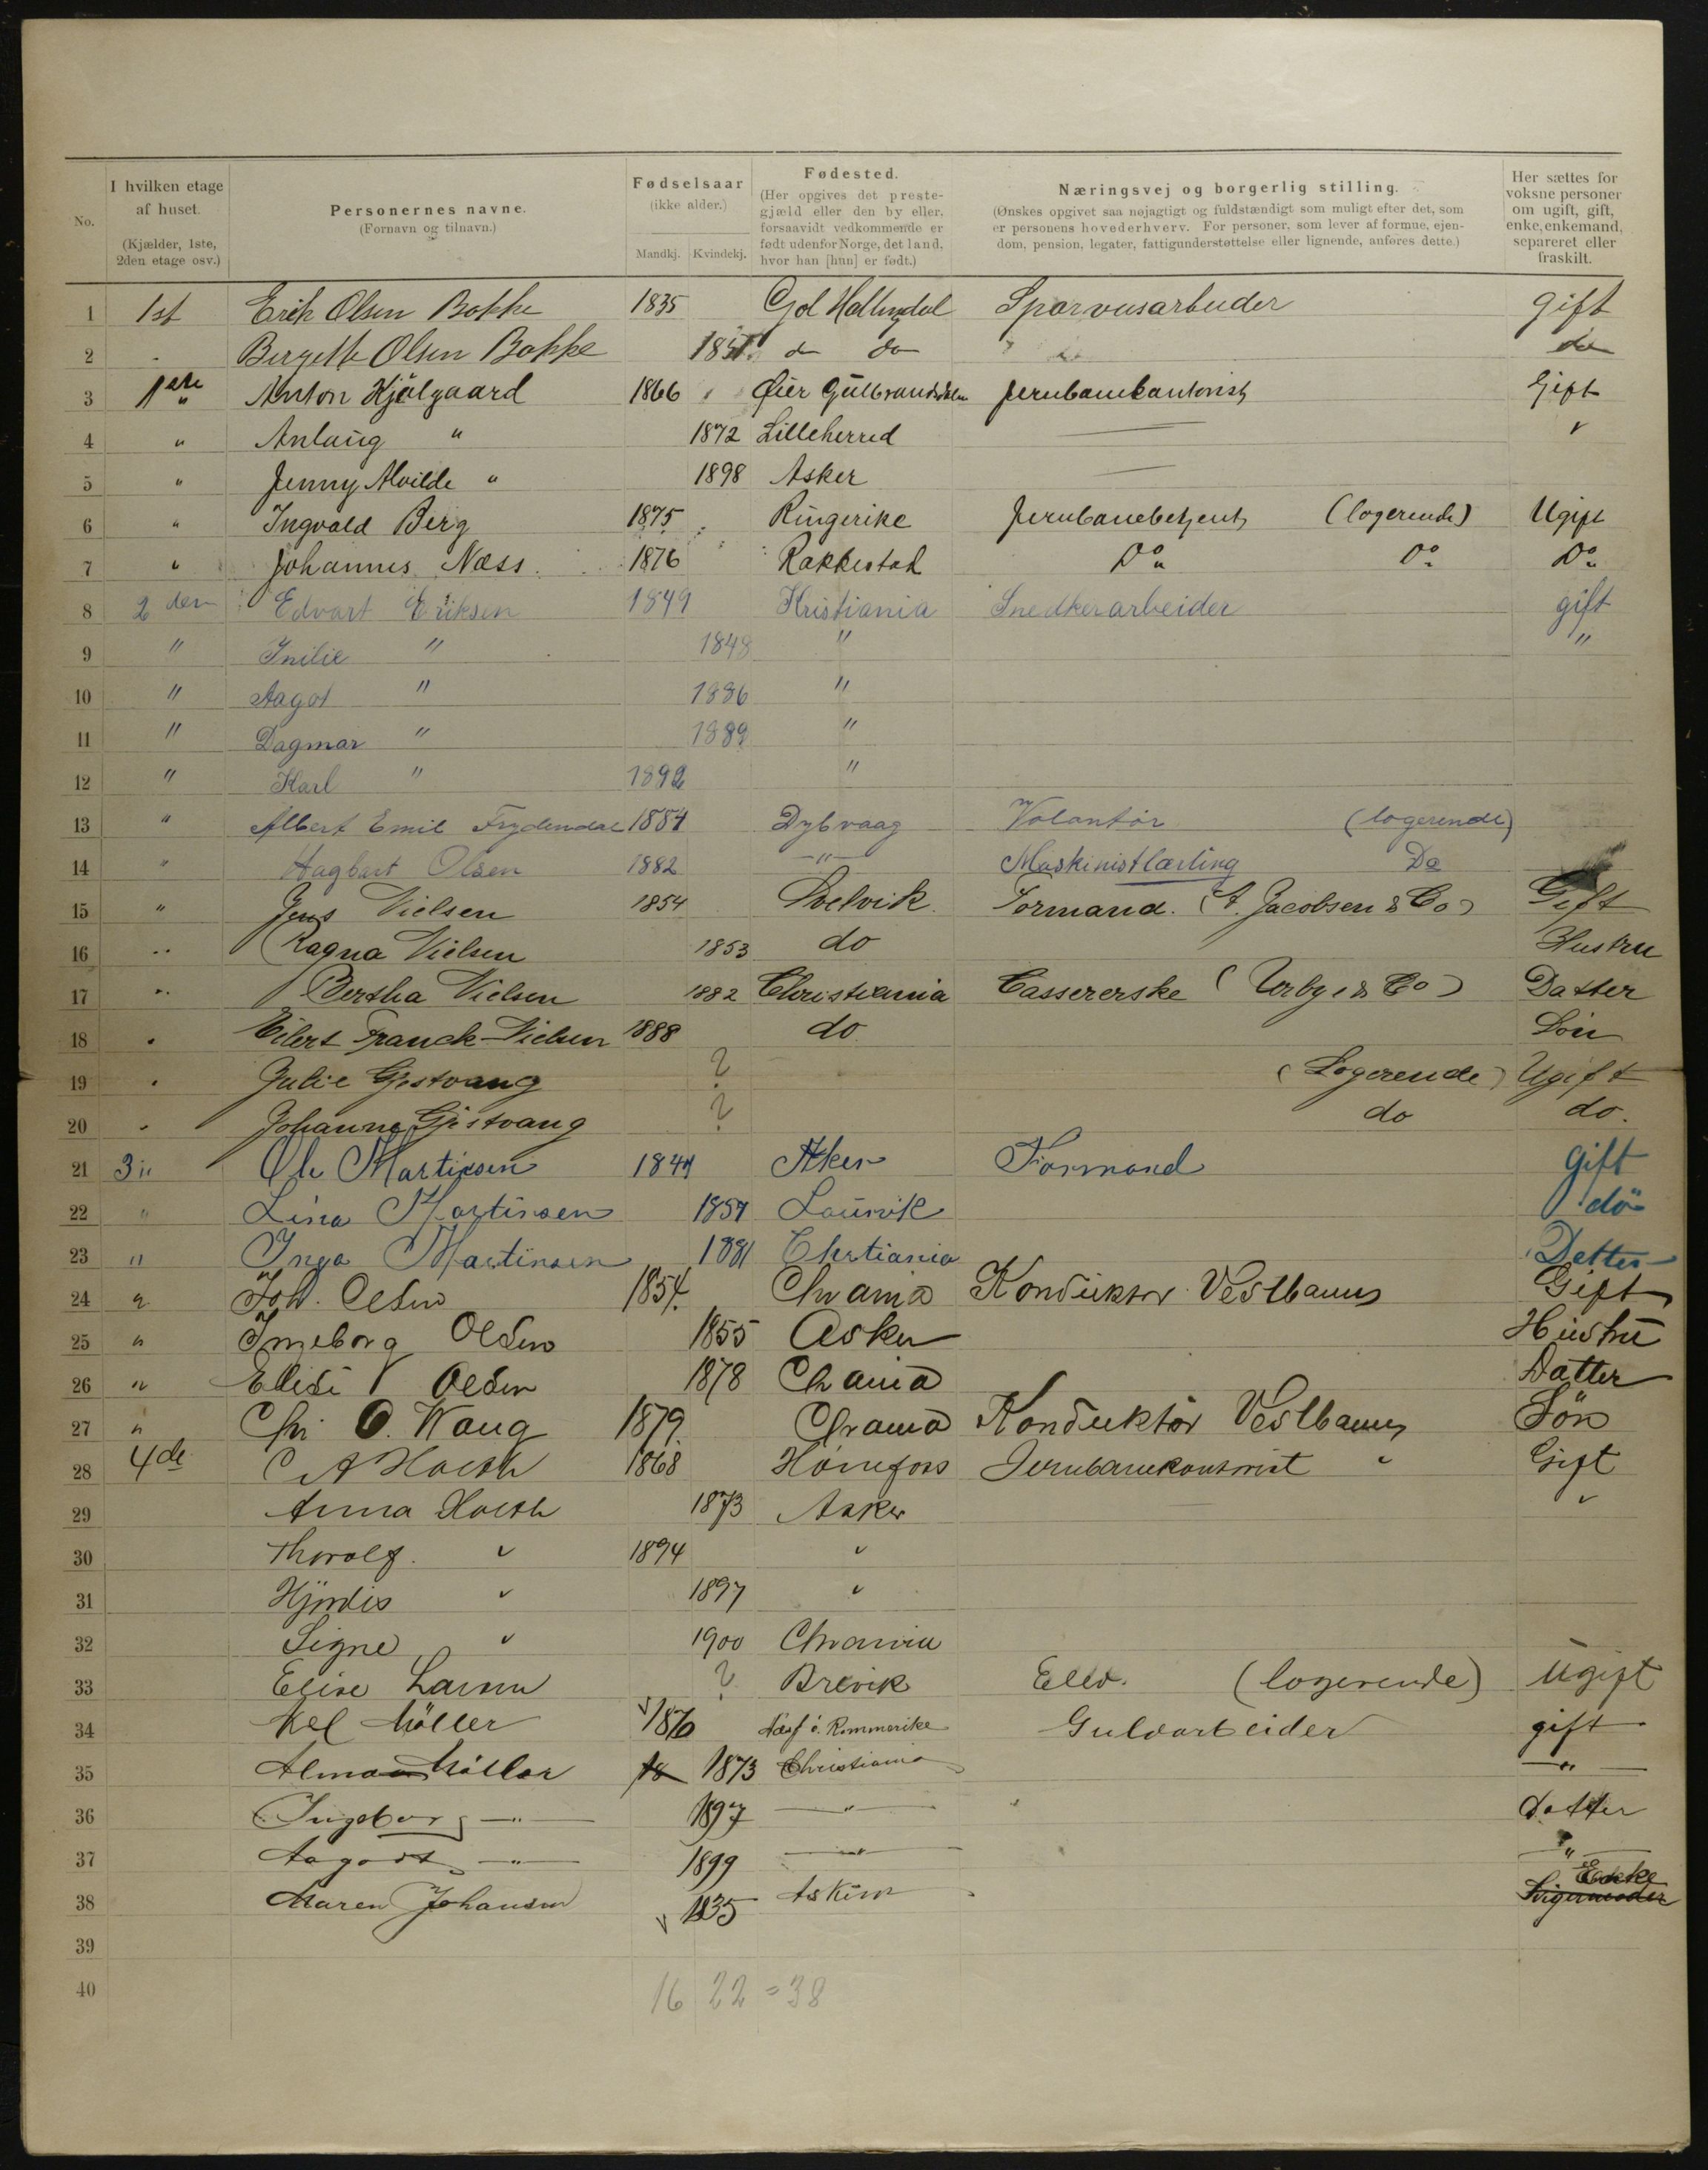 No.
I hvilken etage af huset.
(Kjælder, 1ste, 2den etage osv.)
Personernes navne.
(Fornavn og tilnavn.)
Fødselsaar
(ikke alder.)
Mandkj. Kvindekj.
Fødested.
(Her opgives det prestegjæld eller den by eller, forsaavidt vedkommende er født udenfor Norge, det land, hvor han [hun] er født.)
Næringsvej og borgerlig stilling.
(Ønskes opgivet saa nøjagtigt og fuldstændigt som muligt efter det, som er personens hovederhverv. For personer, som lever af formue, ejendom, pension, legater, fattigunderstøttelse eller lignende, anføres dette.)
Her sættes for voksne personer om ugift, gift, enke, enkemand, separeret eller fraskilt.
1 1st Erik Olsen Bakke 1835 Gol Hallingdal gift
2 Olsen Bakke do do
3 1ste Anton Hjälgaard 1866 Øier Gulbrandsdalen Jernbanekontorist Gift
4 " Anlaug " 1872 Lilleherred
5 " Jenny Alvilde " 1898 Asker
6 " Ingvald Berg 1875 Ringerike Jernbanebetjent (logerende) Ugift
7 " Johannes Næss 1876 Rakkestad Do Do Do
8 2den Edvart Eriksen 1849 Kristiania Snedkerarbeider gift
9 " " 1848 " "
10 " Aagot " 1886 "
11 " Dagmar " 1889 "
12 " Karl " 1892 "
13 " Albert Emil Frydendal 1884 Dybvaag Volontør (logerende)
14 " Hagbart Olsen 1882 " Maskinistlærling Do
15 " Jens Nielsen 1854 Svelvik Formand. (A. Jacobsen & Co) Gift
16 " Ragna Nielsen 1853 do Hustru
17 " Bertha Nielsen 1882 Christiania Cassererske ( & Co) Datter
18 " Eilert Franck Nielsen 1888 do Sön
19 " Julie Gjestvang ? (Logerende) Ugift
20 " Johanne Gjestvang ? do do.
21 3" Ole Martinsen 1844 Aker Formand Gift
22 " Lina Martinsen 1857 Laurvik do
23 " Inga Martinsen 1881 Chrtiania Datter
24 " Joh. Olsen 1854 Chrania Konduktør Vestbanen Gift
25 " Ingeborg Olsen 1855 Asker Hustru
26 " Elise Olsen 1878 Chrania Datter
27 " Chr. O. Waug 1879 Chrania Konduktør Vestbanen Sön
28 4de C A Hoelth 1868 Hønefoss Jernbanekontorist " Gift
29 Anna Hoelth 1873 Asker "
30 Thorolf " 1894 "
31 Hjördis " 1897 "
32 Signe " 1900 Chrania
33 Elise Larsen ? Brevik (logerende) Ugift
34 Möller 1870 Romerike Guldarbeider gift
35 Alma Möller 18 1873 Christiania "
36 Ingeborg " 1897 " datter
37 Aagodt " 1899 " "
38 Maren Johansen 1835 Askim Enke
39
40 16 22 = 38